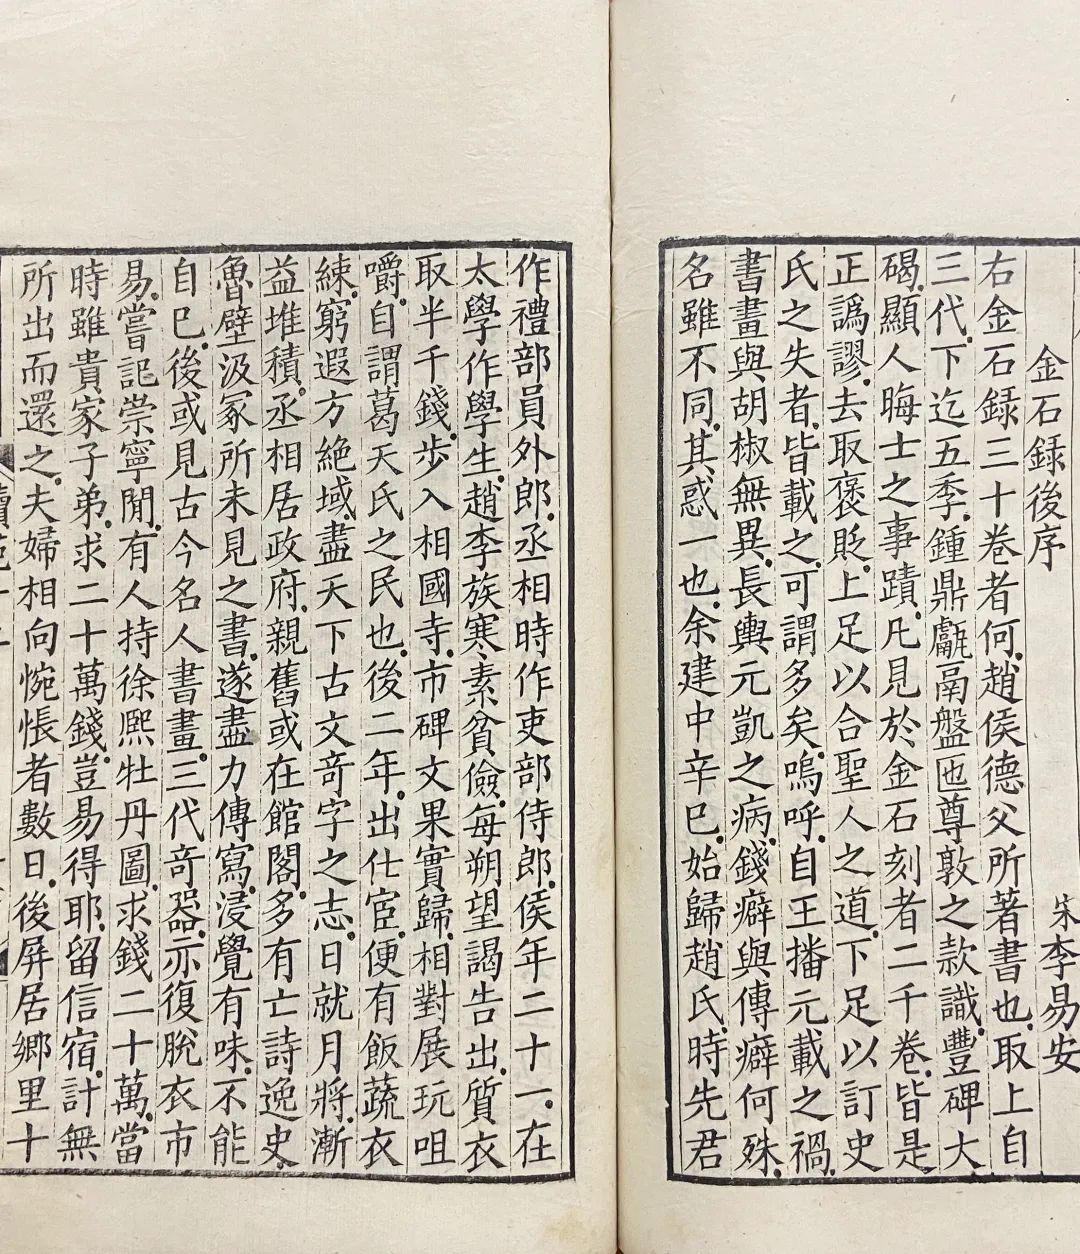 金石録後序
宋李易安
右金石録三十卷者何。趙侯德父所著書也。取上自
三代。下迄五季。鍾鼎甗鬲盤匜尊敦之款識。豐碑大
碣。顯人晦士之事蹟。凡見於金石刻者二千卷。皆是
正譌謬。去取褒貶。上足以合聖人之道。下足以訂史
氏之失者。皆載之。可謂多矣。嗚呼。自王播元載之禍。
書畫與胡椒無異。長輿元凱之病。錢癖與傳癖何殊。
名雖不同。其惑一也。余建中辛巳。始歸趙氏。時先君
作禮部員外郎。丞相時作吏部侍郎。侯年二十一。在
太學作學生。趙李族寒。素貧儉。每朔望謁告出。質衣
取半千錢。步入相國寺。市碑文果實歸。相對展玩咀
嚼。自謂葛天氏之民也。後二年。出仕宦。便有飯蔬衣
練。窮遐方絶域盡天下古文奇字之志。日就月將。漸
益堆積。丞相居政府。親舊或在館閣。多有亡詩逸史。
魯壁汲冢所未見之書。遂盡力傳寫。浸覺有味。不能
自已。後或見古今名人書畫。三代奇器。亦復脫衣市
易。嘗記崇寧閒。有人持徐熙牡丹圖。求錢二十萬。當
時雖貴家子弟。求二十萬錢。豈易得耶。留信宿。計無
所出而還之。夫婦相向惋悵者數日。後屏居鄉里十